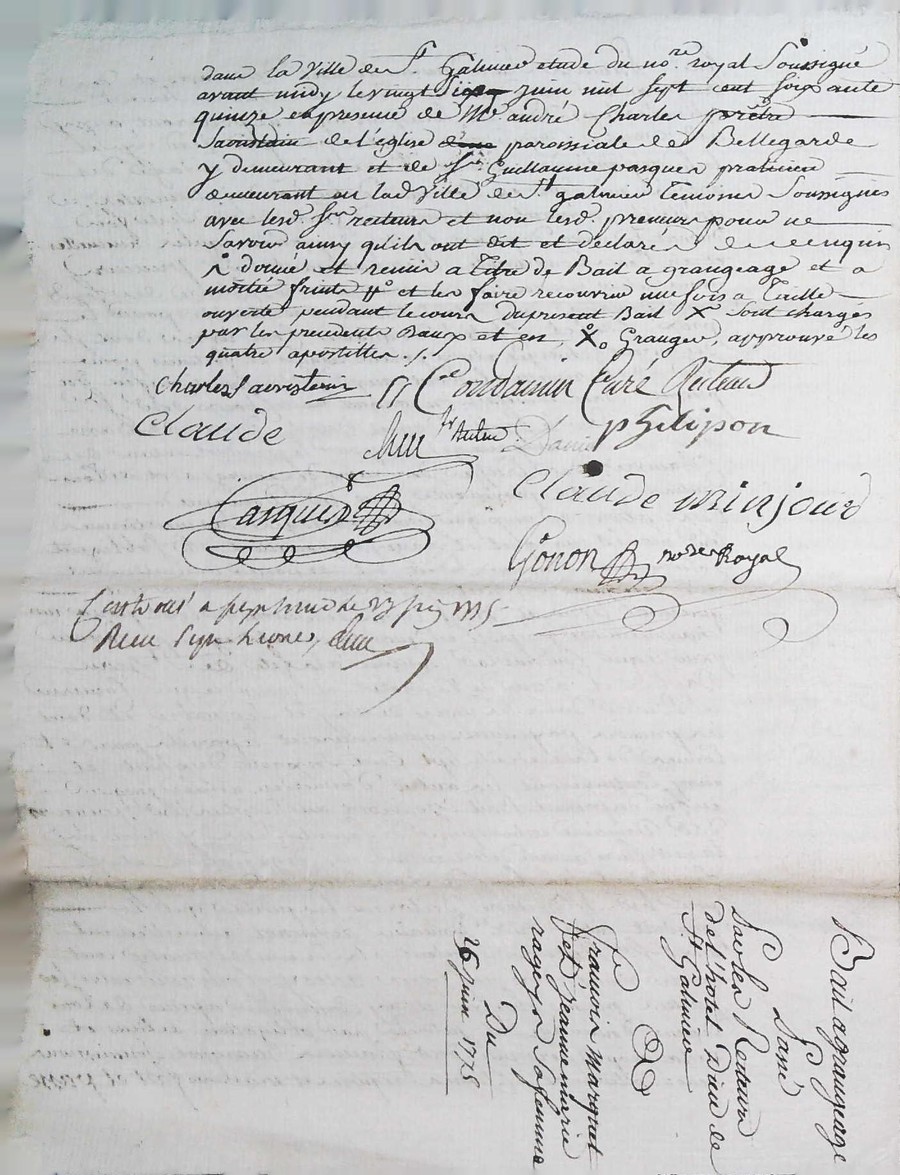 dans la Ville de St Galmier etude du nore royal Soussigné
avant midy le vingt six juin mil sept cent soixante
quinze en presence de Mre andré Charles prêtre
Sacristain de l'eglise paroissiale de Bellegarde
y demeurant et de sr Guillaume pasquier praticien
demeurant en lad Ville de St galmier temoins Soussignés
avec lesd. srs recteurs et non lesd. preneurs pour ne
Savoir ainsy qu'ils ont dit et déclaré de ce enquis
donné et remis a titre de Bail a grangeage et a
moitié fruits # et les faire recouvrir une fois a Taille
ouverte pendant le cours du present Bail X Sont chargés
par les precedents Baux et en X Granger, approuvé les
quatre apostilles ./.
Charles Sacristain Condamin Curé Recteur
Claude
philipon
pasquier
Claude
Gonon nore Royal
Controllé a le 27 juin 1775
Recu
Bail a grangeage
Passé
Par les Recteurs
de l'hotel Dieu de
St Galmier
A
francois marquet
et jeanne marie
sa femme
Du
26 juin 1775